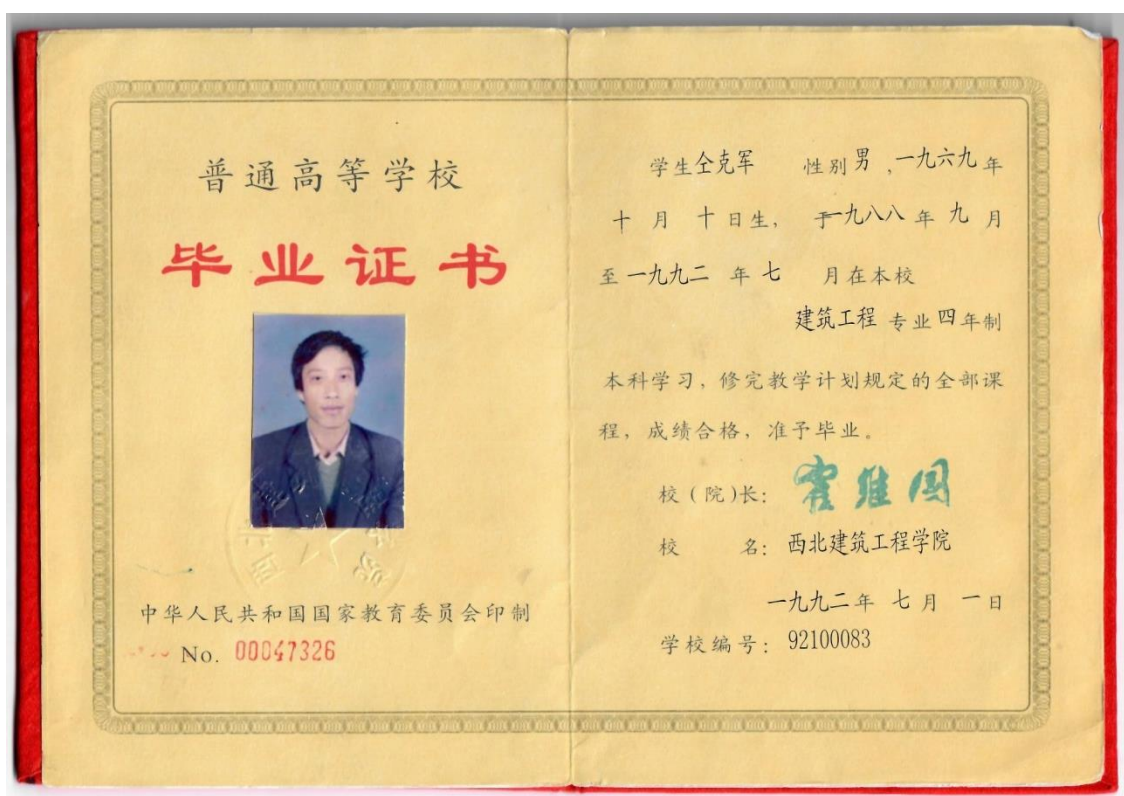 普通高等学校
毕业证书
中华人民共和国国家教育委员会印制
No. 00047326
学生仝克军 性别男,一九六九年
十月十日生,于一九八八年九月
至一九九二年七月在本校
建筑工程专业四年制
本科学习,修完教学计划规定的全部课
程,成绩合格,准予毕业。
校(院)长:霍维国
校名:西北建筑工程学院
一九九二年七月一日
学校编号:92100083